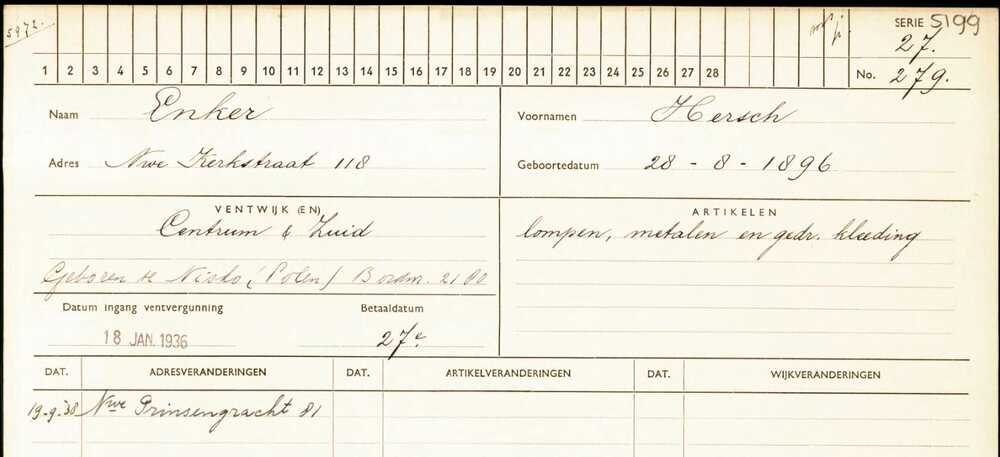 5972.
SERIE 5199
27.
1 2 3 4 5 6 7 8 9 10 11 12 13 14 15 16 17 18 19 20 21 22 23 24 25 26 27 28
No. 279.
Naam Enker
Voornamen Hersch
Adres Nwe Kerkstraat 118
Geboortedatum 28-8-1896
VENTWIJK (EN)
ARTIKELEN
Centrum & Zuid
lompen, metalen en gedr. kleeding
Geboren te Nisko (Polen)
Datum ingang ventvergunning
Betaaldatum
18 JAN. 1936
27e
DAT. ADRESVERANDERINGEN DAT. ARTIKELVERANDERINGEN DAT. WIJKVERANDERINGEN
19-9-'38 Nwe Prinsengracht 81